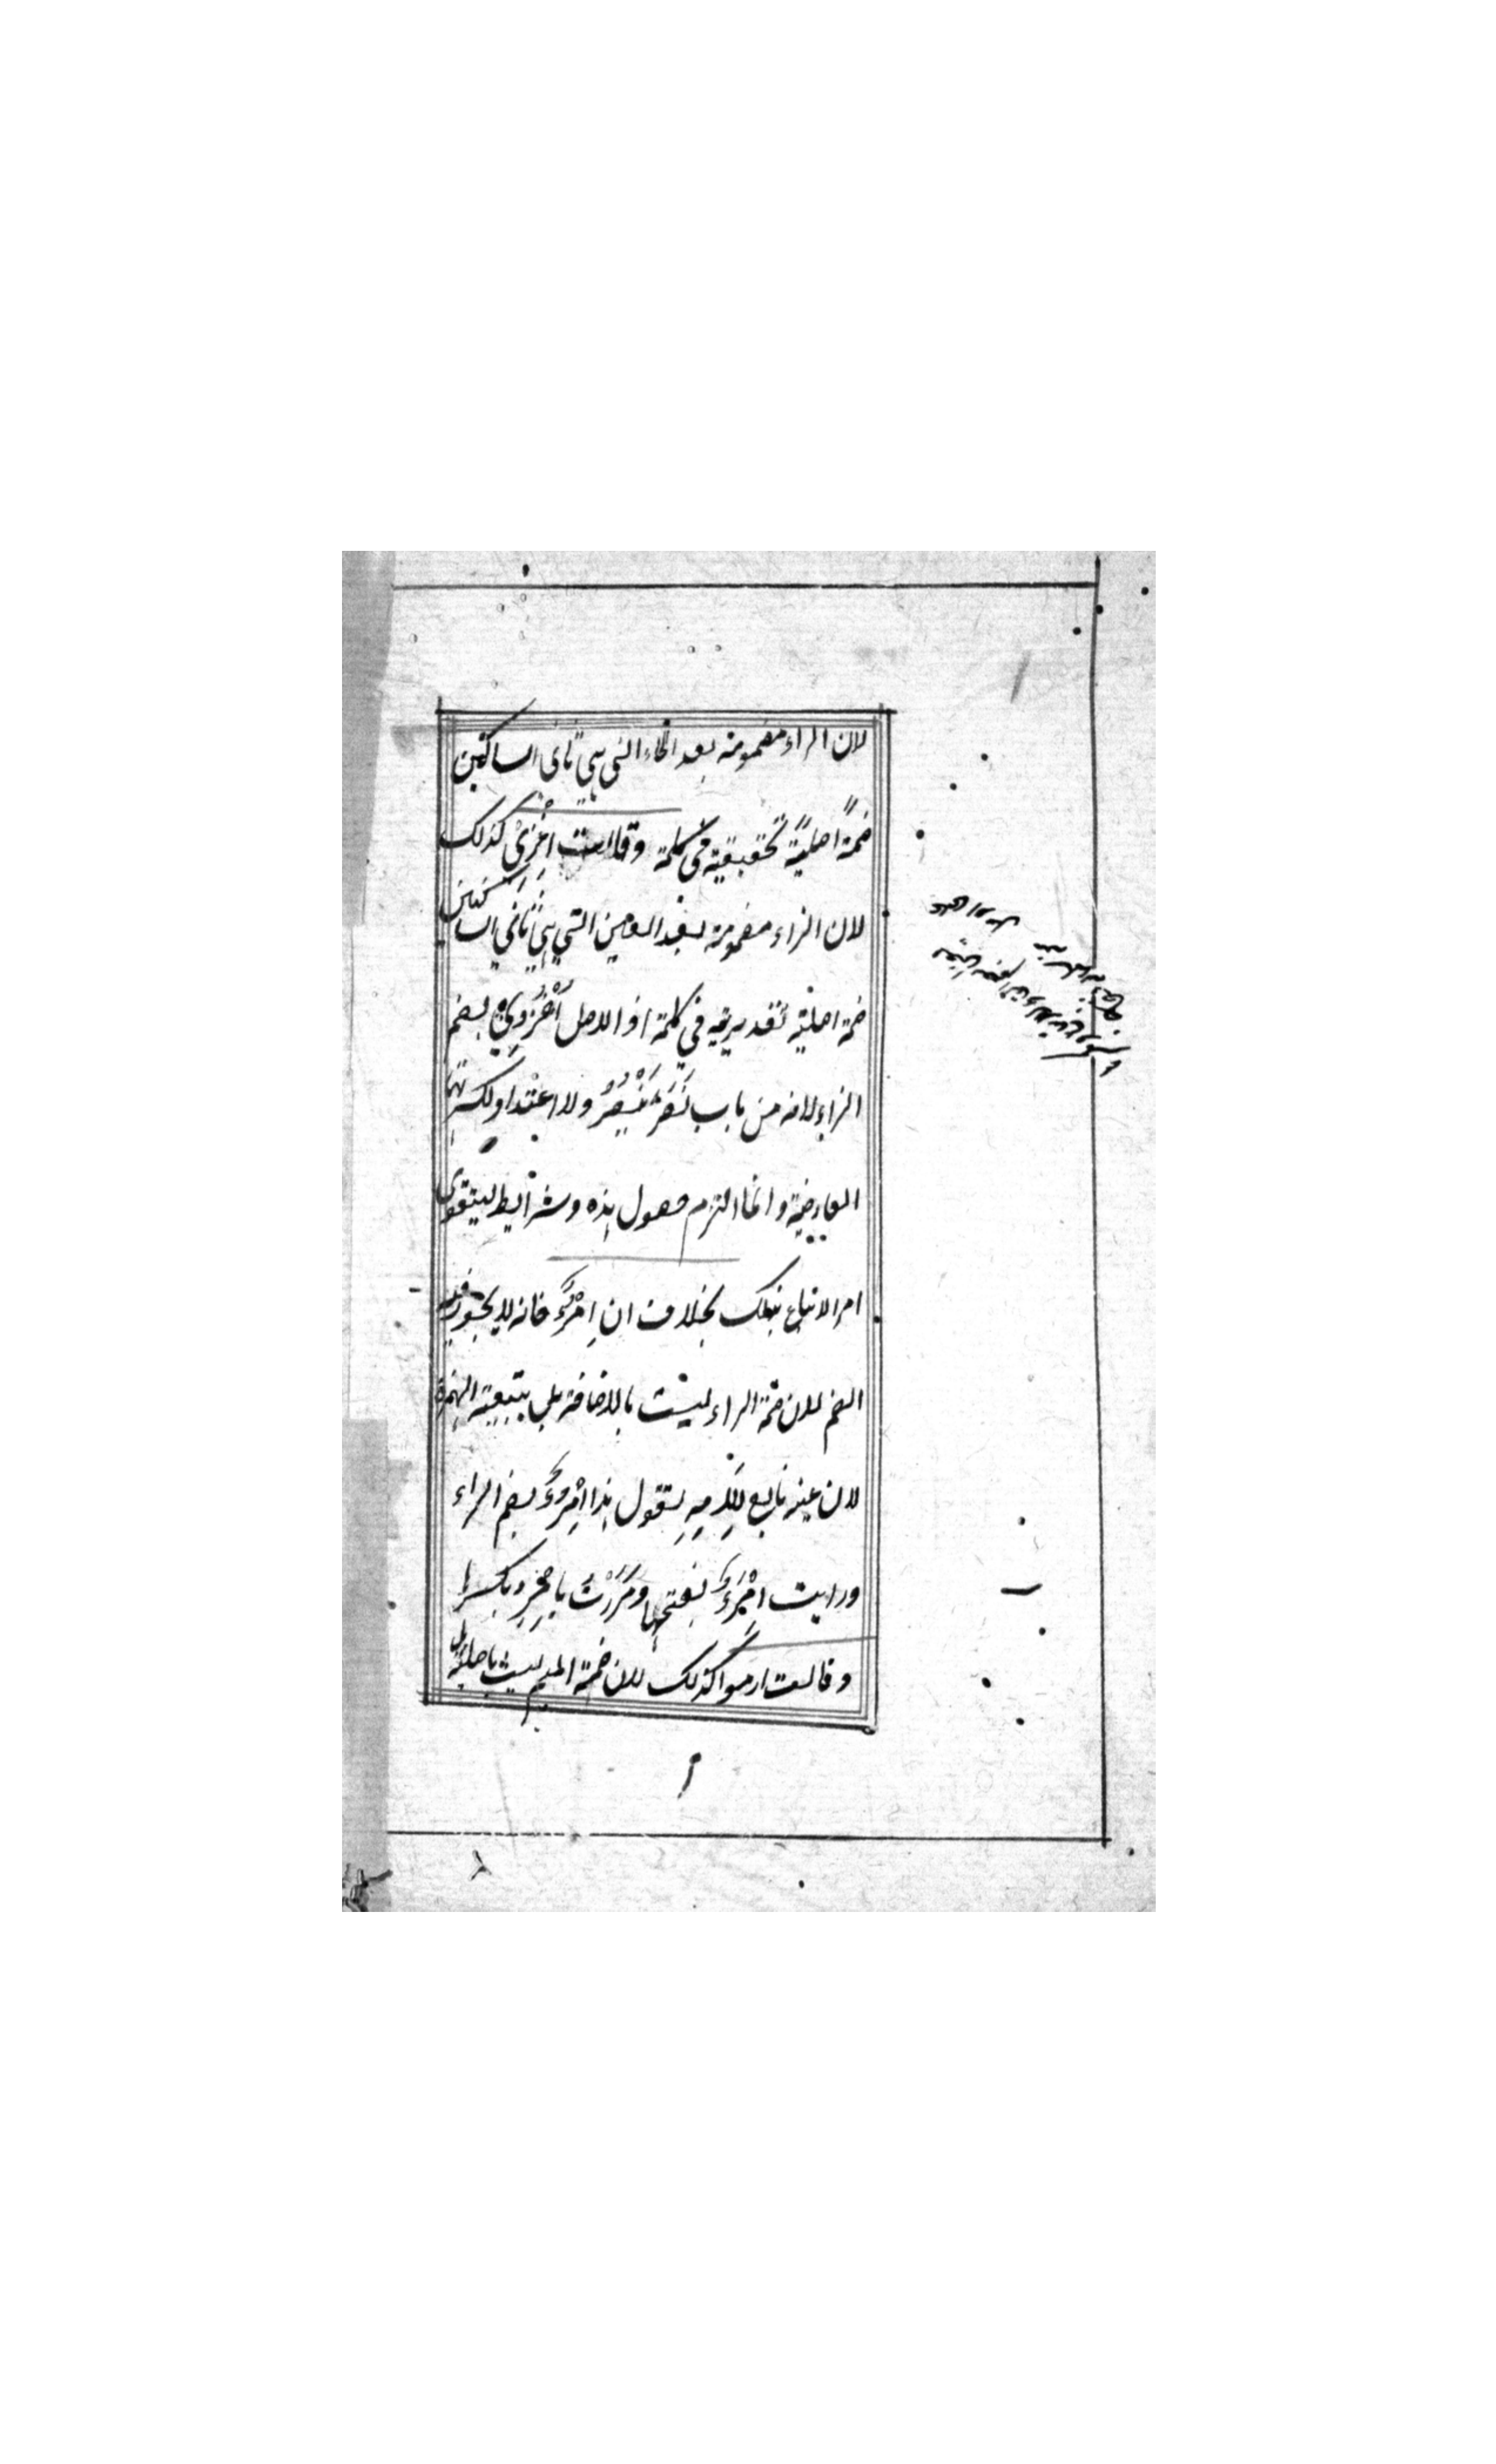 لان الراء مضمومة بعد الخاء التي هي ثاني الساكنين
ضمة اصلية تحقيقية في كلمة وقالت اغزي كذلك
لان الزاء مضمومة بعد الغين التي هي ثاني الساكنين
ضمة اصلية تقديرية في كلمة اذ الاصل اغزوي بضم
الزاء لانه من باب نصر ينصر ولا اعتداد لكسرتها
العارضية وانما التزم حصول هذه وشرايط ليتقوى
امر الاتباع بتلك بخلاف ان امرؤ فانه لا يجوز فيه
الضم لان ضمة الراء ليست بالاضافة بل بتبعية الهمزة
لان عينه تابع للامه يقول هذا امروء بضم الراء
ورايت امرء بفتحها ومررت بامرء بكسرها
وقالت ارموا كذلك لان ضمة الميم ليست باصلية بل